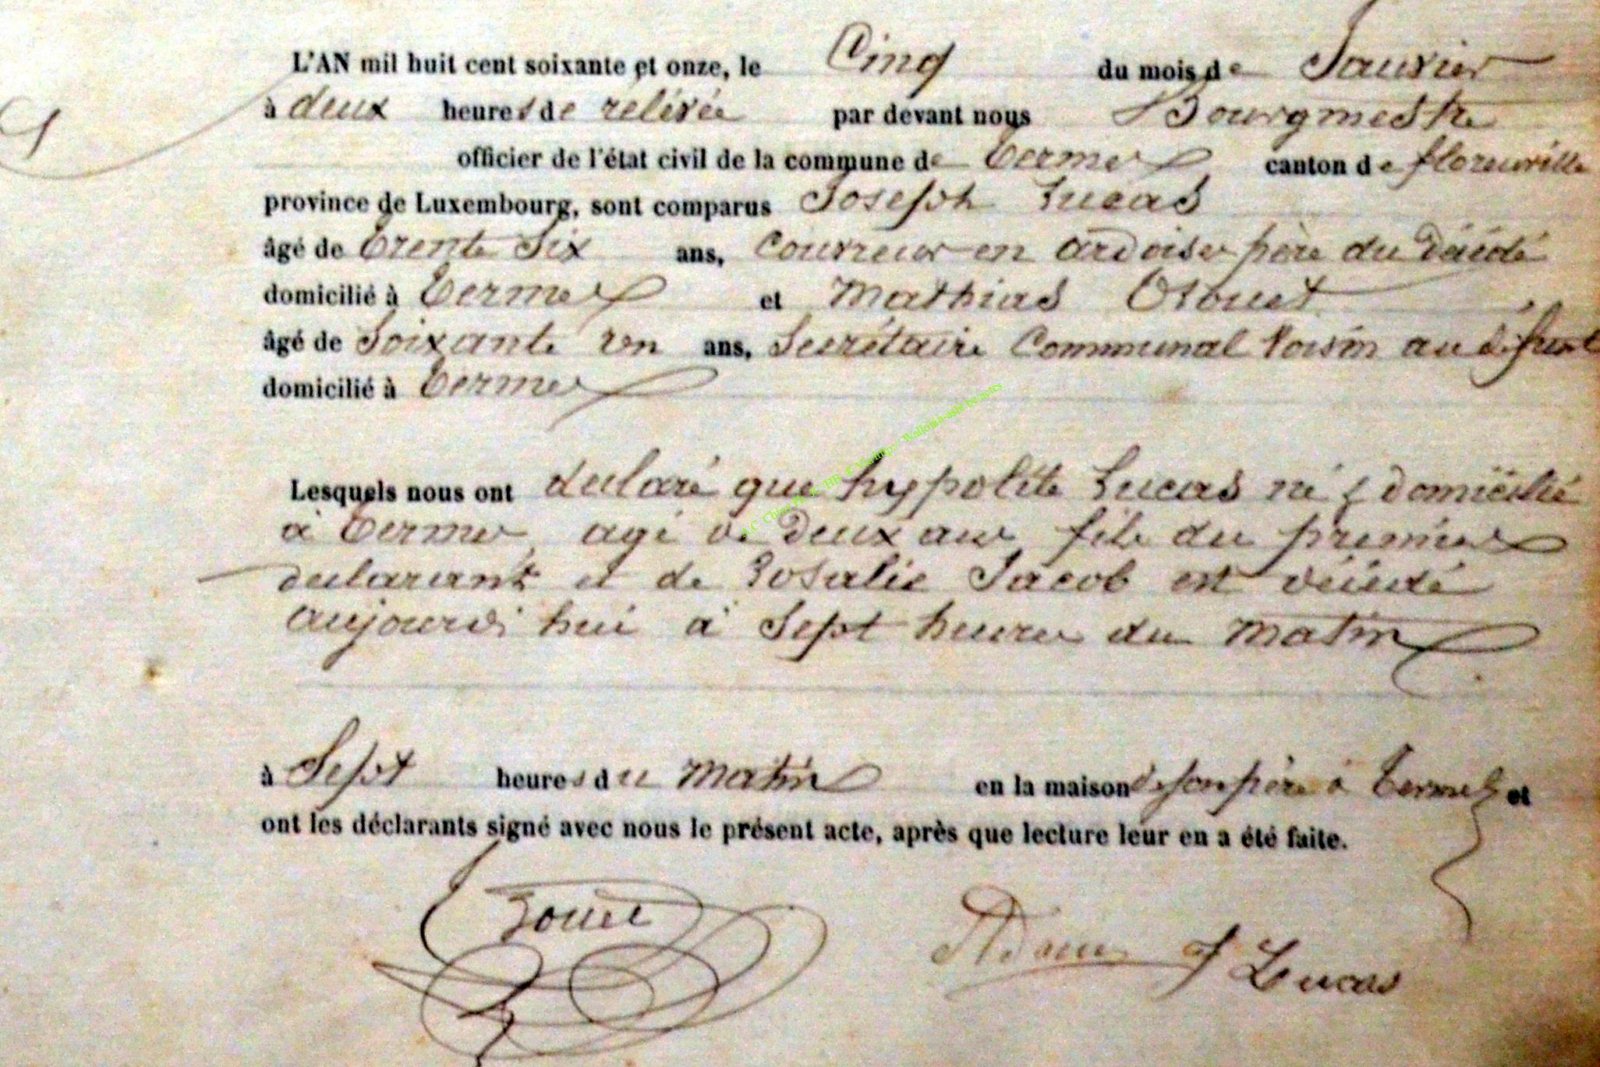 L'AN mil huit cent soixante et onze, le Cinq du mois de Janvier
à deux heures de rélévée par devant nous Bourgmestre
officier de l'état civil de la commune de Termes canton de florenville
province de Luxembourg, sont comparus Joseph Lucas
âgé de trente Six ans, Couvreur en ardoises père du décédé
domicilié à Termes et Mathias
âgé de Soixante un ans, Secrétaire Communal Voisin au défunt
domicilié à Termes
Lesquels nous ont déclaré que hypolite Lucas né & domicilié
à Termes agé de Deux ans fils du premier
déclarant et de Rosalie Jacob est décédé
aujourd'hui à Sept heures du matin
à Sept heures du matin en la maison de son père à Termes et
ont les déclarants signé avec nous le présent acte, après que lecture leur en a été faite.
J Lucas